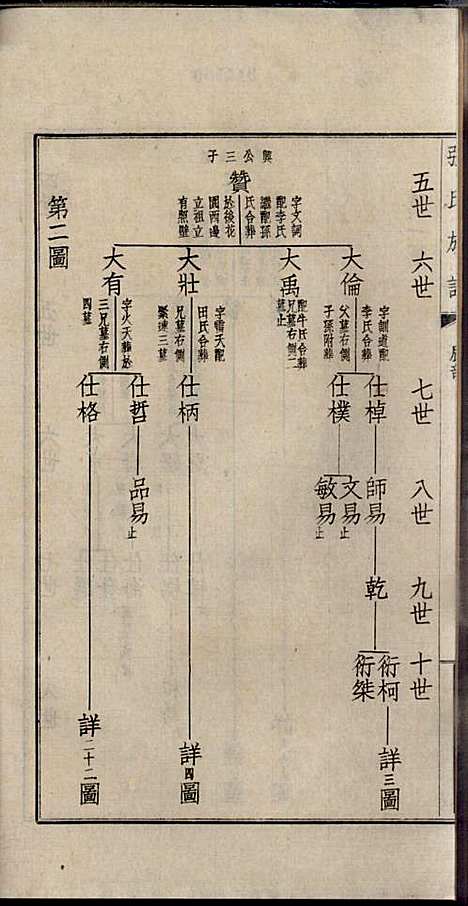 張氏族譜
五世 六世 七世 八世 九世 十世
興公三子
贊
字文詞
配李氏
繼配孫
氏合葬
於後花
園西邊
立祖立
有照壁
大倫
字訓道配
李氏合葬
父墓右側
子孫附葬
大禹
配牛氏合葬
兄墓右側二
墓止
大壯
字雷天配
田氏合葬
兄墓右側
聚連三墓
大有
字火天葬於
三兄墓右側
四墓
仕棹
仕樸
仕柄
仕哲
仕格
師易
文易止
敏易止
品易止
乾
衍柯
衍桀
詳三圖
詳四圖
詳二十二圖
第二圖